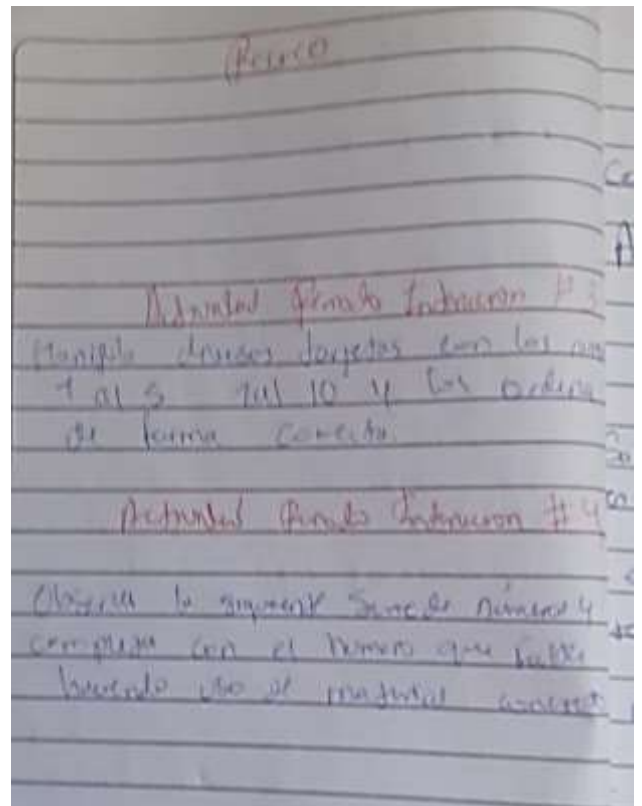 Actividad Punto Interacción #3
Manipula diversas tarjetas con los
1 al 5 1 al 10 y los ordena
de forma correcta
Actividad Punto Interacción #4
Observa la siguiente serie de números y
completa con el número que falta
haciendo uso de material concreto